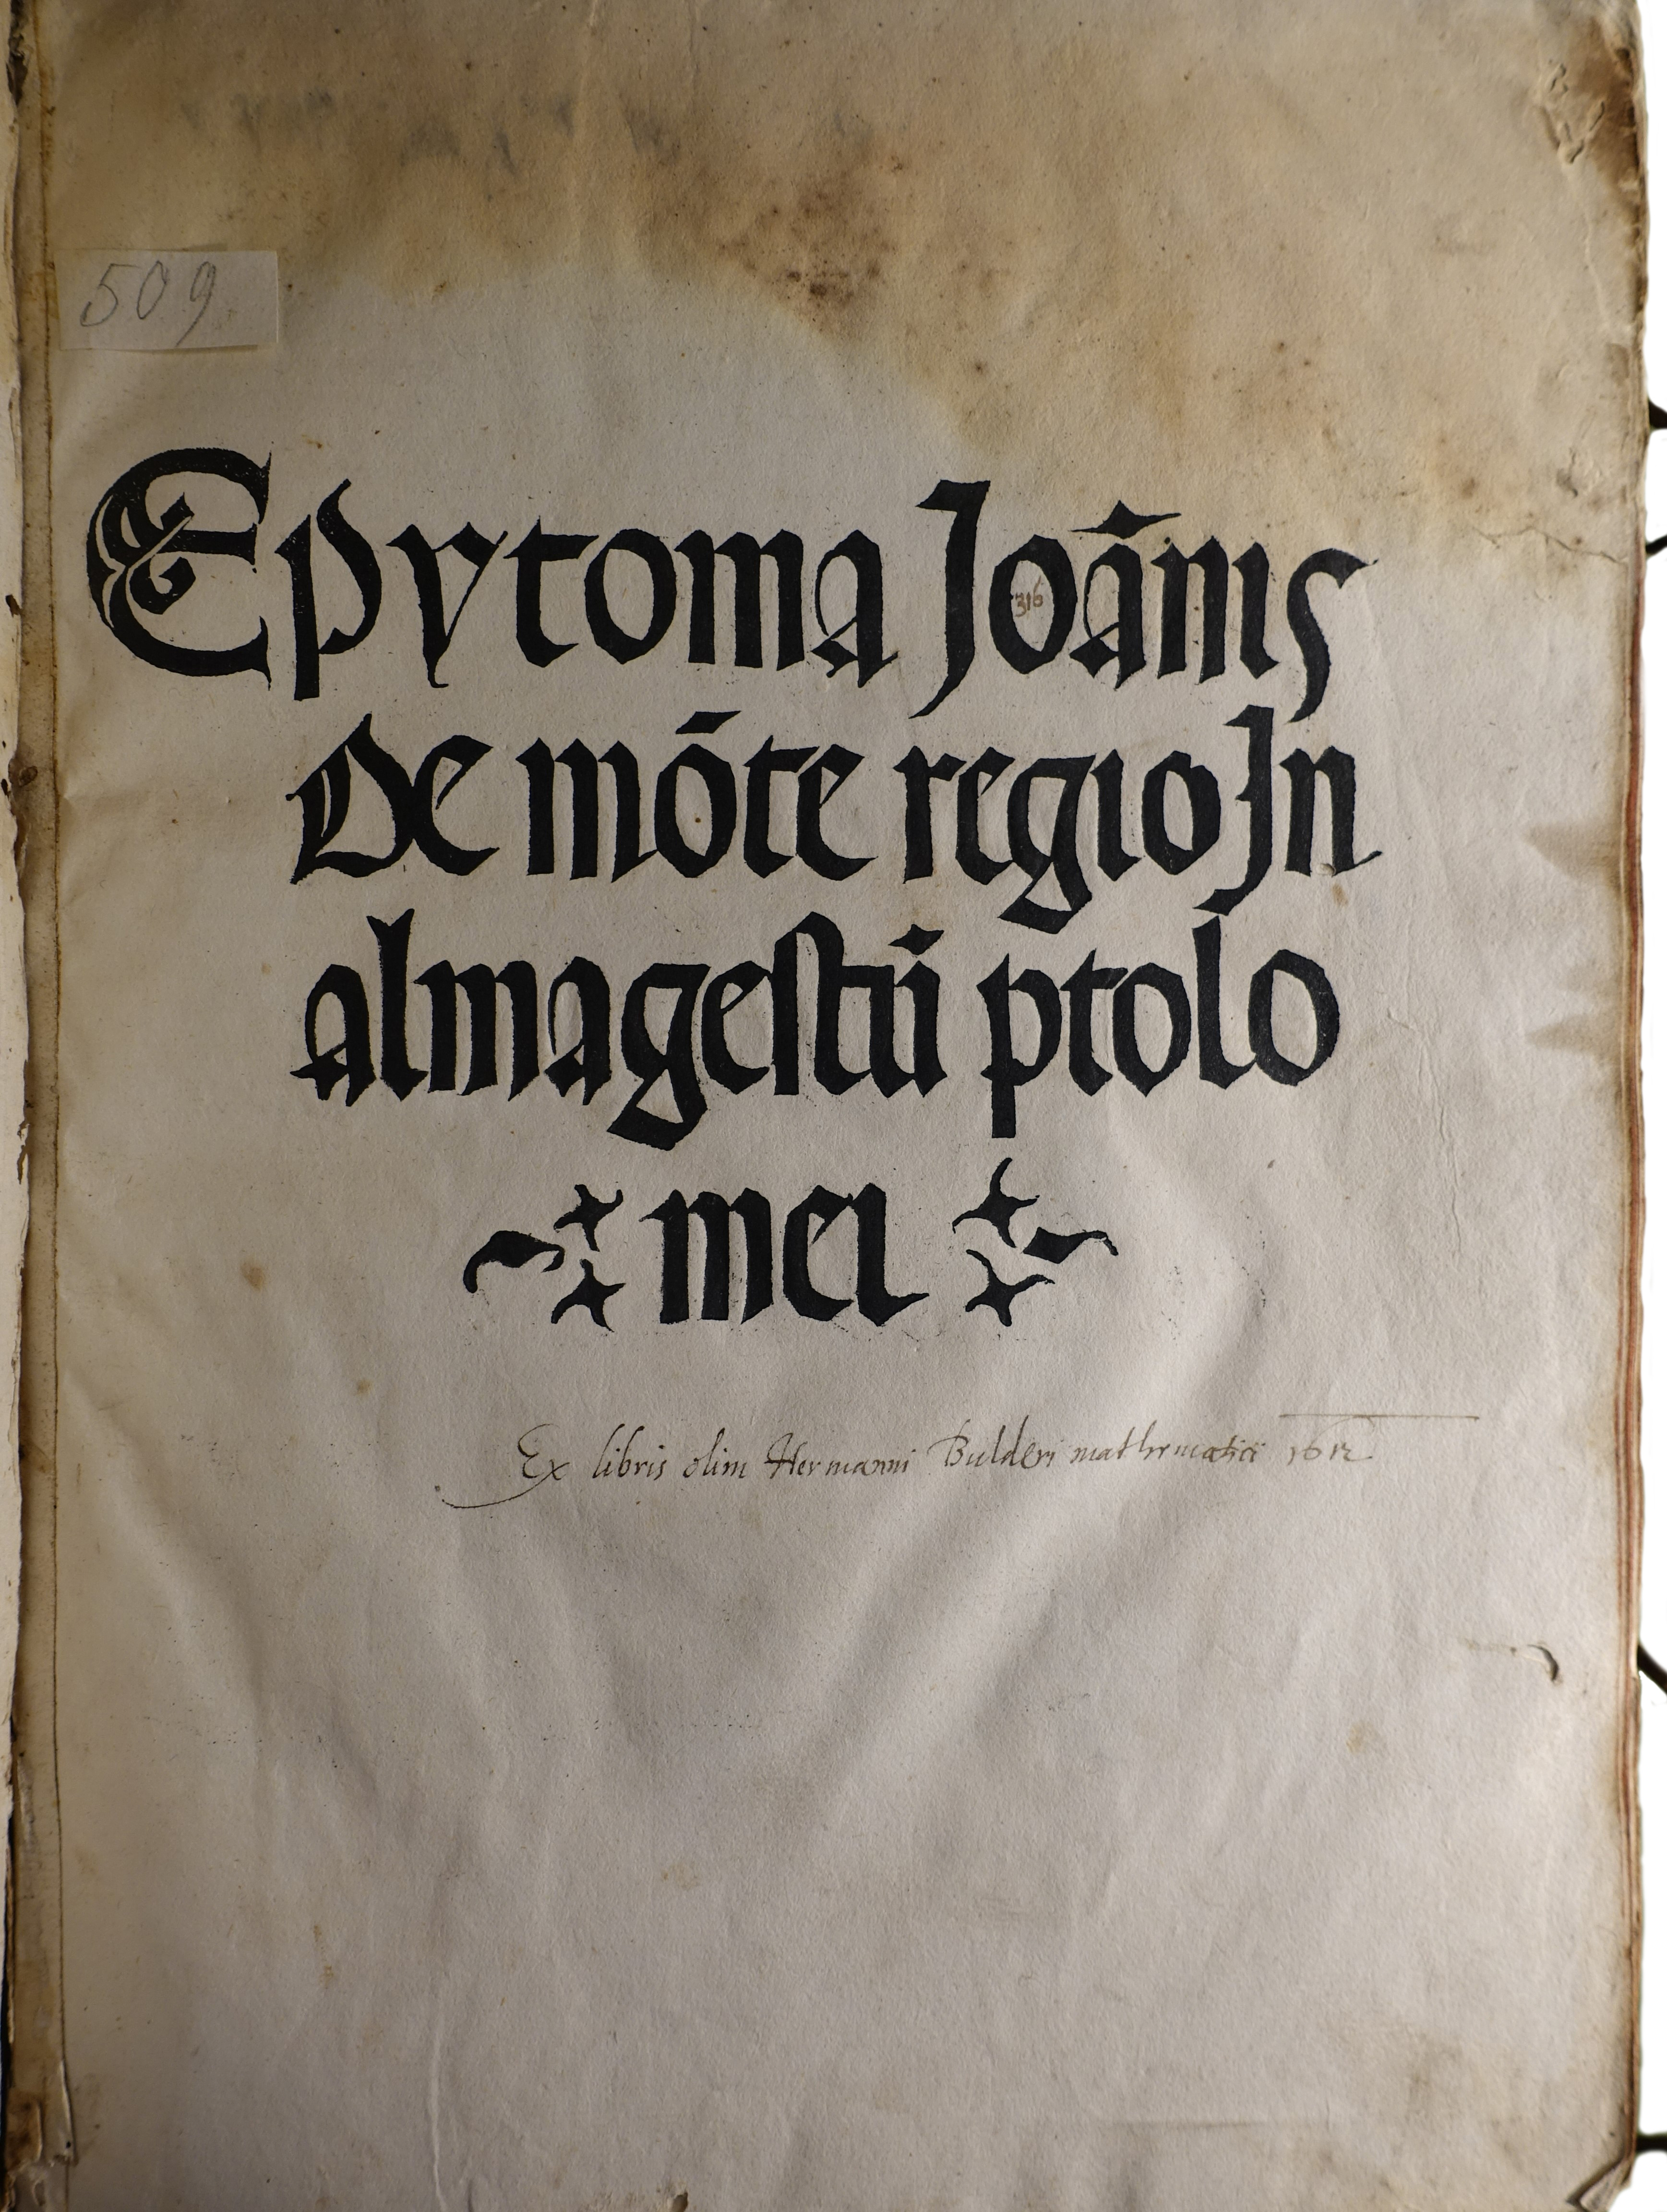 509
Epytoma Joãnis
316
De mõte regio Jn
almagestũ ptolo
mei
Ex libris olim Hermanni Bulderi mathematici 1612